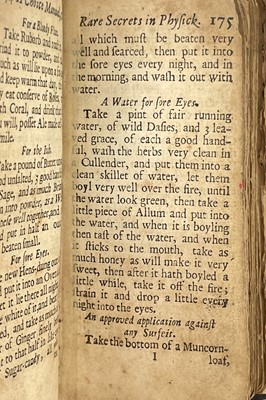 a Choice Manual,
For a Bloody Flux.
Take Rubarb and
it to powder, and
much as will lye upon a
keep warm that day,
eat conserve of Roses,
with Coral, and drink
will, posset Ale made
For the Itch.
Take a pound of Butter
unsalted, 3 good hand
Sage, and as much
into powder,
well together, and
put in half an
beaten small.
For sore Eyes.
new Hens-dung
put it into an
it lie there all night
white of it, and
of Ginger finely
to that half in
Sugar-candy,
Rare Secrets in Physick. 175
all which must be beaten very
well and searced, then put it into
the sore eyes every night, and in
the morning, and wash it out with
water.
A Water for sore Eyes.
Take a pint of fair running
water, of wild Dasies, and 3 lea-
ved grass, of each a good hand-
ful, wash the herbs very clean in
a Cullender, and put them into a
clean skillet of water, let them
boyl very well over the fire, until
the water look green, then take a
little piece of Allum and put into
the water, and when it is boyling
then tast of the water, and when
it sticks to the mouth, take as
much honey as will make it very
sweet, then after it hath boyled a
little while, take it off the fire;
strain it and drop a little every
night into the eyes.
An approved application against
any Surfeit.
Take the bottom of a Muncorn-
I loaf,